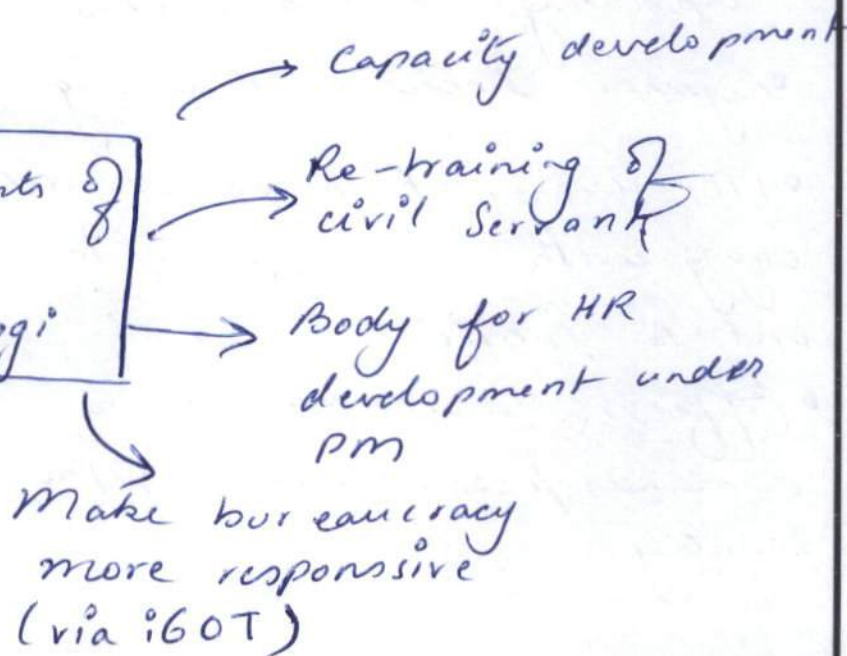 Capacity development
nts of
Re-training of
civil Servant
ogi
Body for HR
development under
PM
Make bureaucracy
more responssive
(via iGOT)